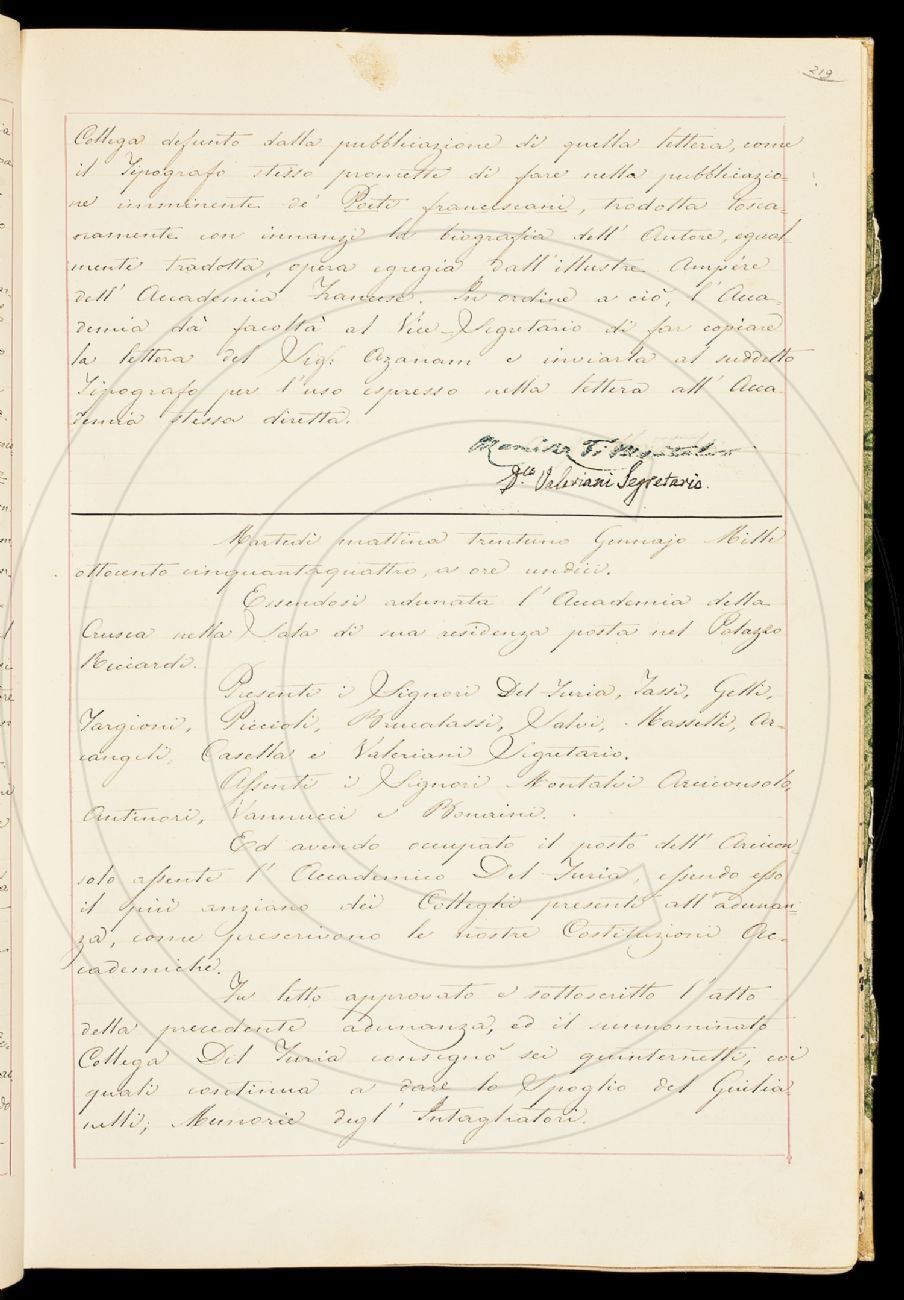 219
Collega defunto dalla pubblicazione di quella lettera, come
il Tipografo stesso promette di fare nella pubblicazio=
ne imminente de' Poeti francescani, tradotta tosca=
namente con innanzi la biografia dell' Autore, egual=
mente tradotta, opera egregia dall'illustre Ampére
dell' Accademia Francese. In ordine a ciò, l' Acca=
demia dà facoltà al Vice-Segretario di far copiare
la lettera del Sig: Ozanam e inviarla al suddetto
Tipografo per l'uso espresso nella lettera all' Acca=
demia stessa diretta.
Valeriani Segretario.
Martedì mattina trentuno Gennajo Mille
ottocento cinquantaquattro, a ore undici.
Essendosi adunata l' Accademia della
Crusca nella Sala di sua residenza posta nel Palazzo
Riccardi.
Presenti i Signori Del-Furia, Tassi, Gelli,
Targioni, Piccioli, Brucalassi, Salvi, Masselli, Ar=
cangeli, Casella e Valeriani Segretario.
Assenti i Signori Montalvi Arciconsolo,
Antinori, Vannucci e Bonaini.
Ed avendo occupato il posto dell' Arcicon
solo assente l' Accademico Del-Furia, essendo esso
il più anziano dei Colleghi presenti all'adunan=
za, come prescrivono le nostre Costituzioni Ac=
cademiche.
Fu letto approvato e sottoscritto l'atto
della precedente adunanza, ed il sunnominato
Collega Del Furia consegnò sei quinternetti, coi
quali continua a dare lo Spoglio del Giulia=
nelli; Memorie degl' Intagliatori.